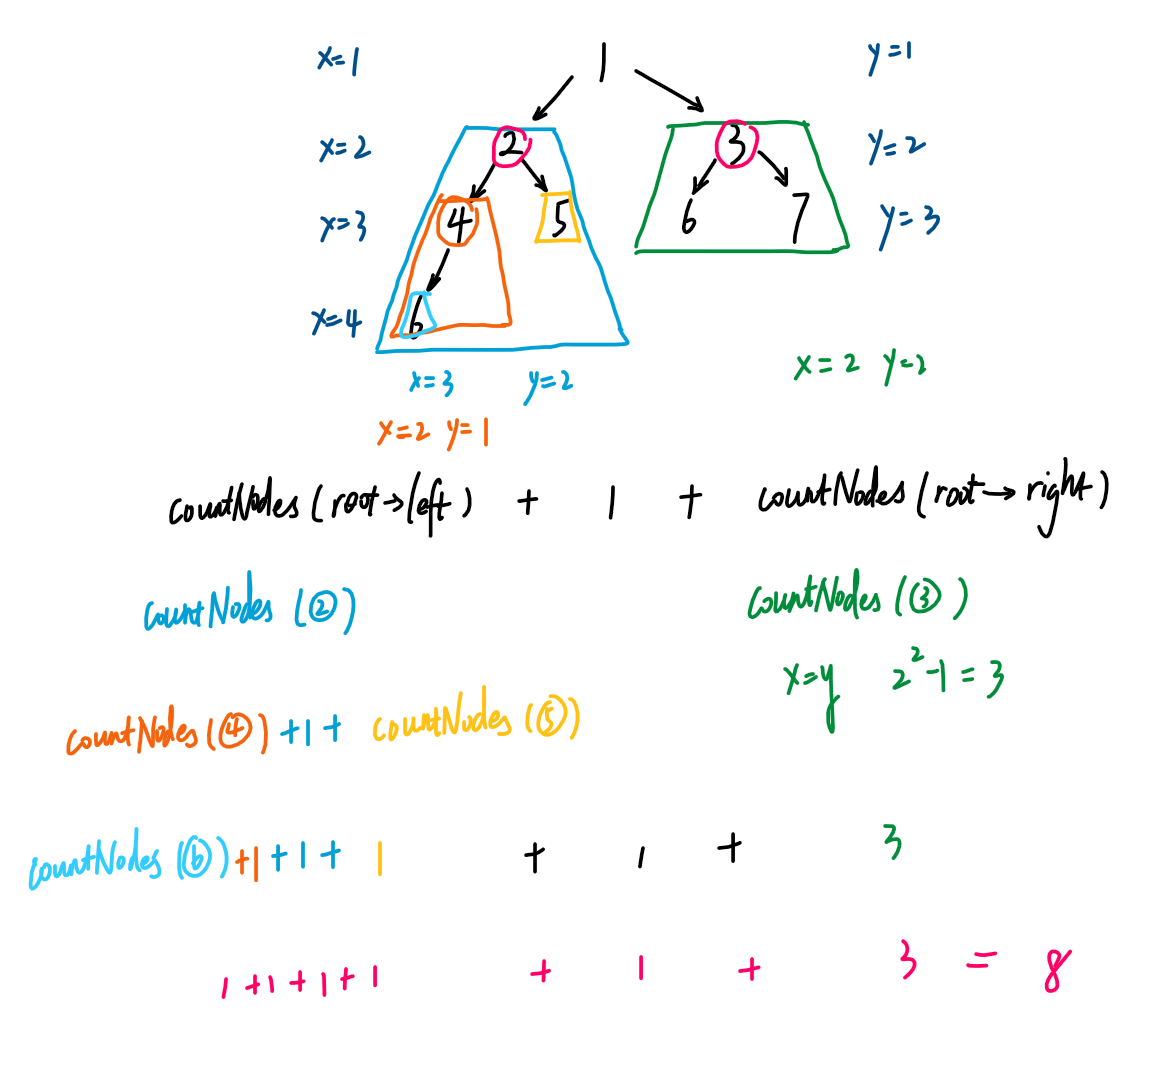 x=1 1 y=1
x=2 2 3 y=2
x=3 4 5 6 7 y=3
x=4 6
x=2 y=2
x=3 y=2
x=2 y=1
countNodes(root→left) + 1 + countNodes(root→right)
countNodes (②) countNodes(③)
x=y 2²-1=3
countNodes(④)+1+ countNodes(⑤)
countNodes(⑥)+1+1+ 1 + 1 + 3
1+1+1+1 + 1 + 3 = 8